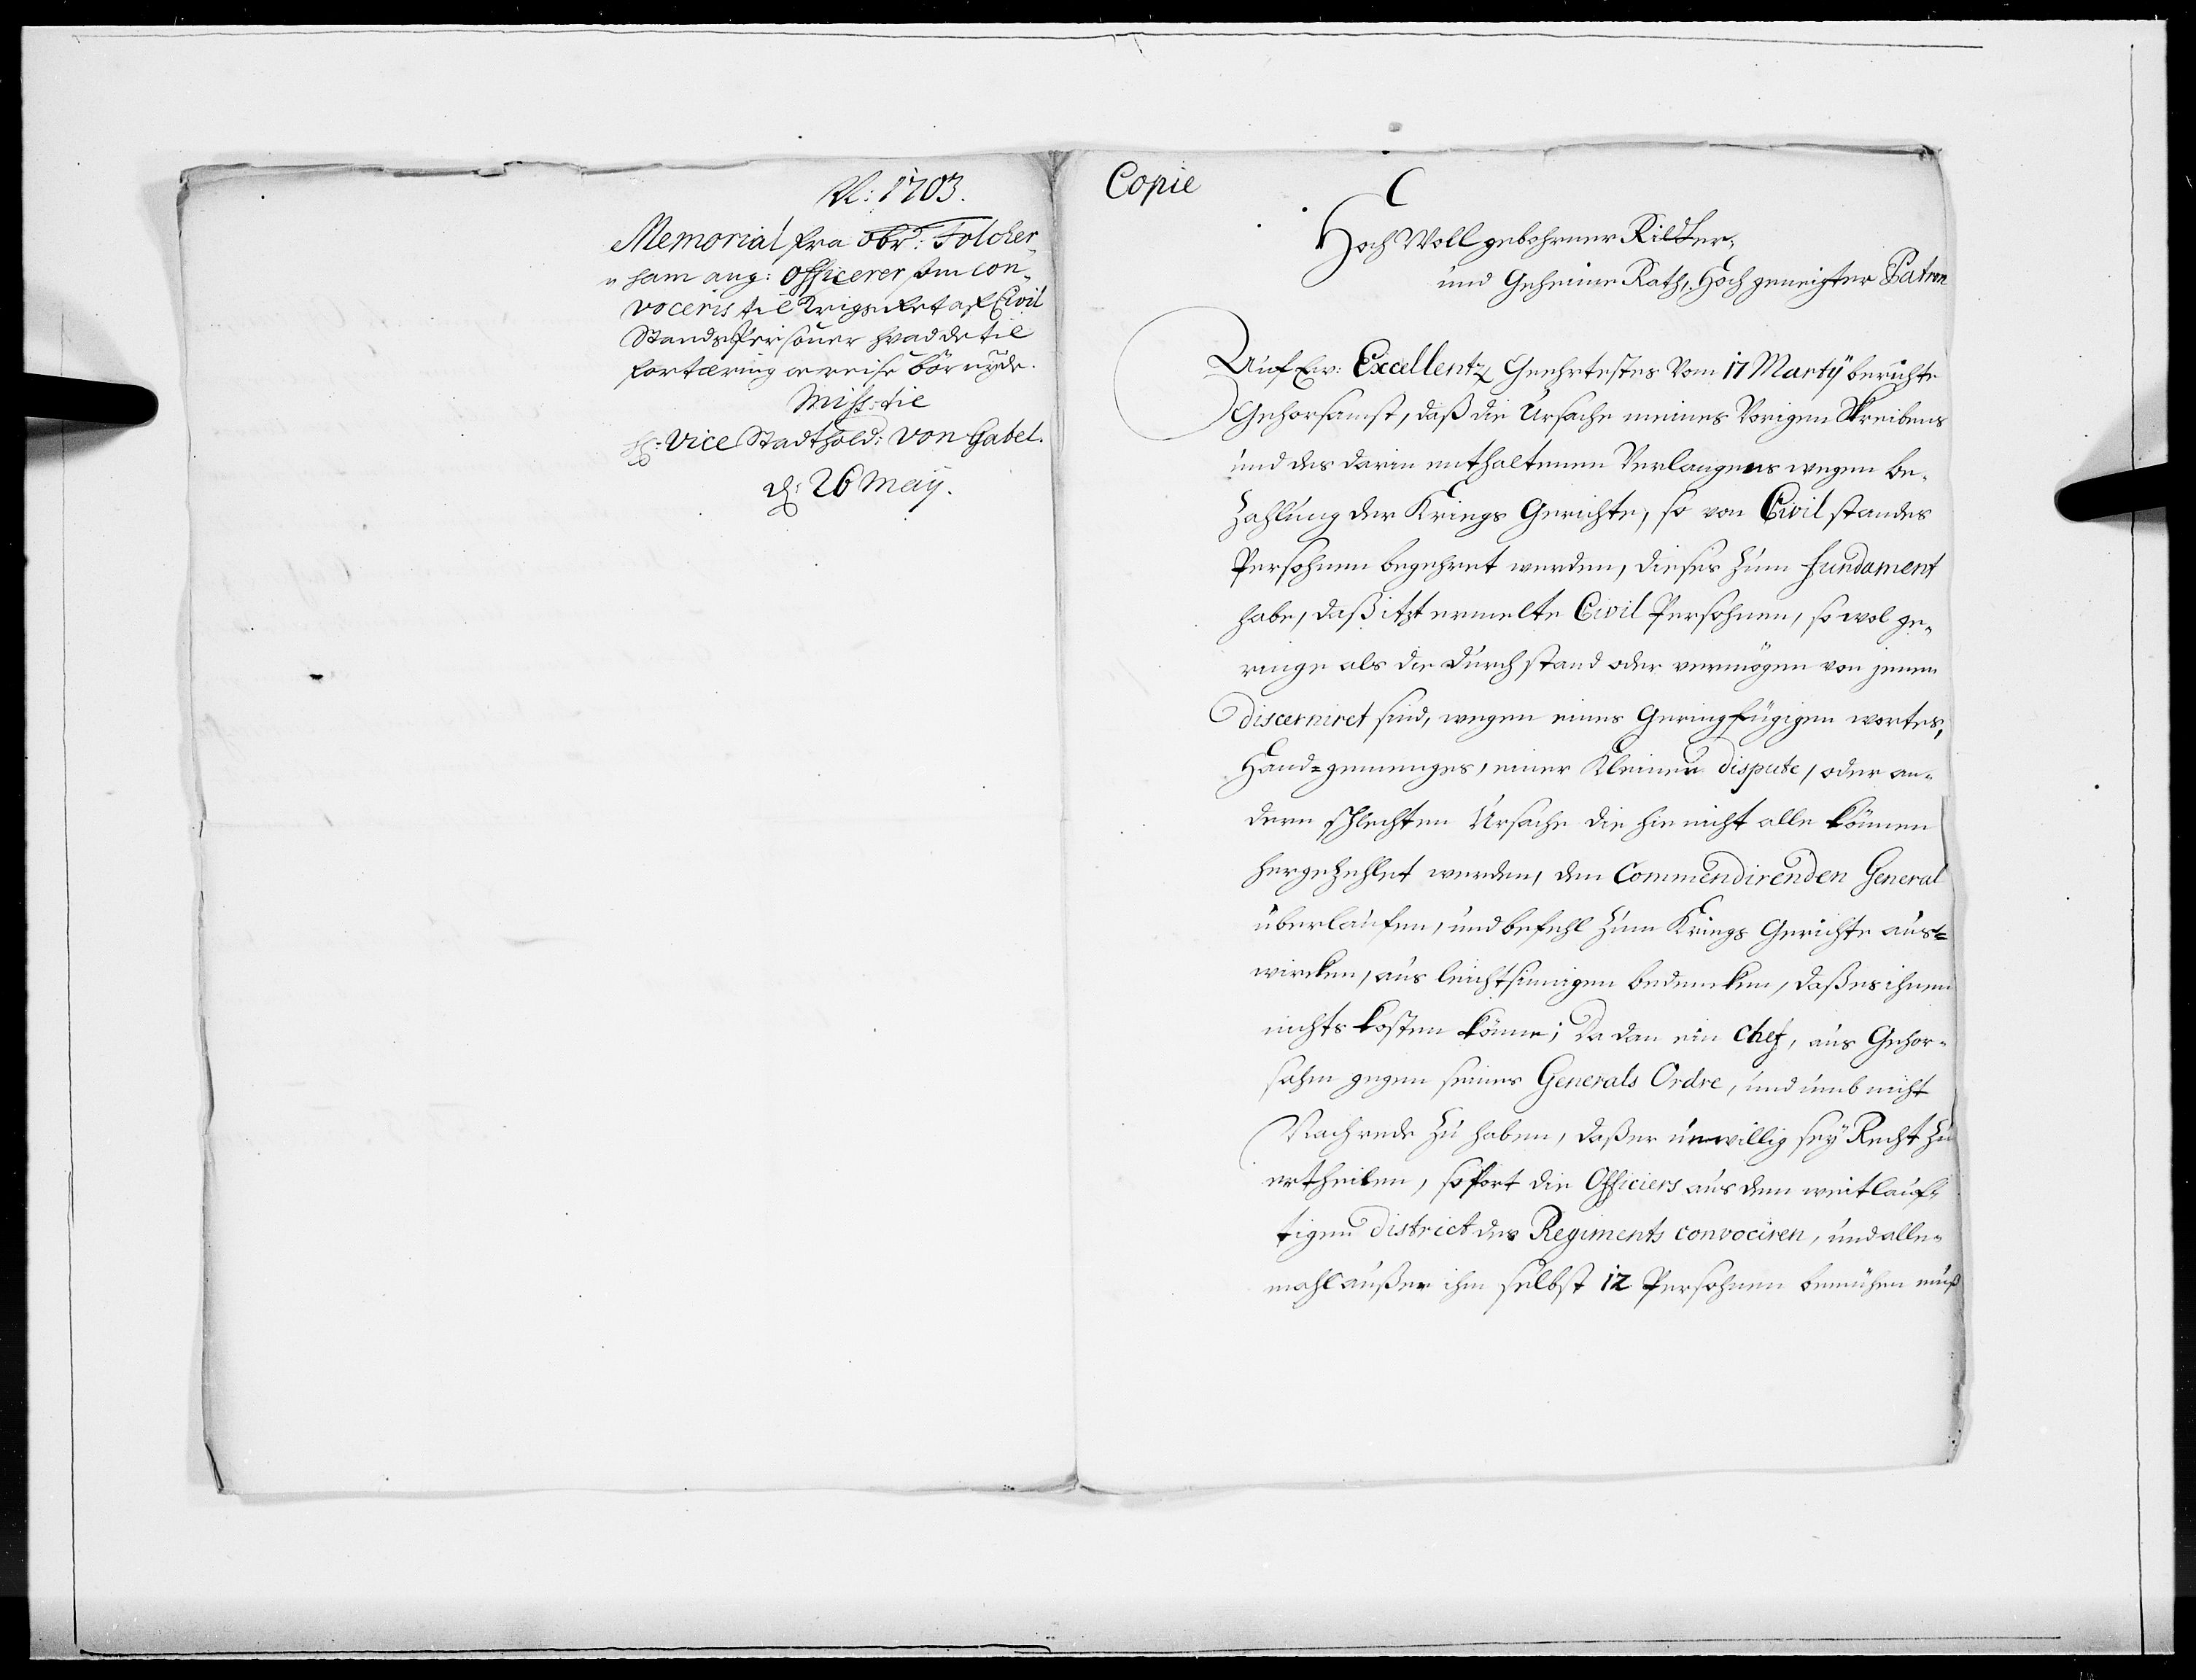 Ao: 1703.
Memorial fra Obr: Folcker-
sham ang: Officerer som con-
voceris til Krigs Ret af Civil
Stands Personer hvad de til
fortæring og reise bör nyde.
Miss: til
H: Vice Stadthold: Von Gabel.
d: 26 Maij.
Copie
Hoch Woll gebohrner Ridter,
und Geheime Rath, Hoch geneigter Patron
Auf Ew: Excellentz Geehrtestes Vom 17 Martÿ berichte
Gehorsamst, daß die Ursache meines Vorigen Skreibens
und des darin enthaltenen Verlangens wegen be-
zahlung der Kriegs Gerichte, so von Civil standes
Persohnen begehret werden, dieses zum fundament
habe, daß itzt ermelte Civil Persohnen, so wol ge-
ringe als die durch stand oder vermögen von jenen
discerniret sind, wegen eines Geringfügigen wortes,
Hand=gemenges, einer kleinen dispute, oder an-
dern schlechten Ursache die hie nicht alle können
hergezehlet werden, den Commendirenden General
überlaufen, und befehl zum Kriegs Gerichte aus=
wircken, aus leichtsinnigen bedencken, daß es ihnen
nichts kosten könne; Da dan ein Chef, aus Gehor-
sahm gegen seines Generals Ordre, und umb nicht
Nachrede zu haben, daß er unwillig seÿ Recht zu
ertheilen, sofort die Officiers aus dem weitläuf-
tigen District des Regiments convociren, und alle-
mahl außer ihm selbst 12 Persohnen bemühen muß